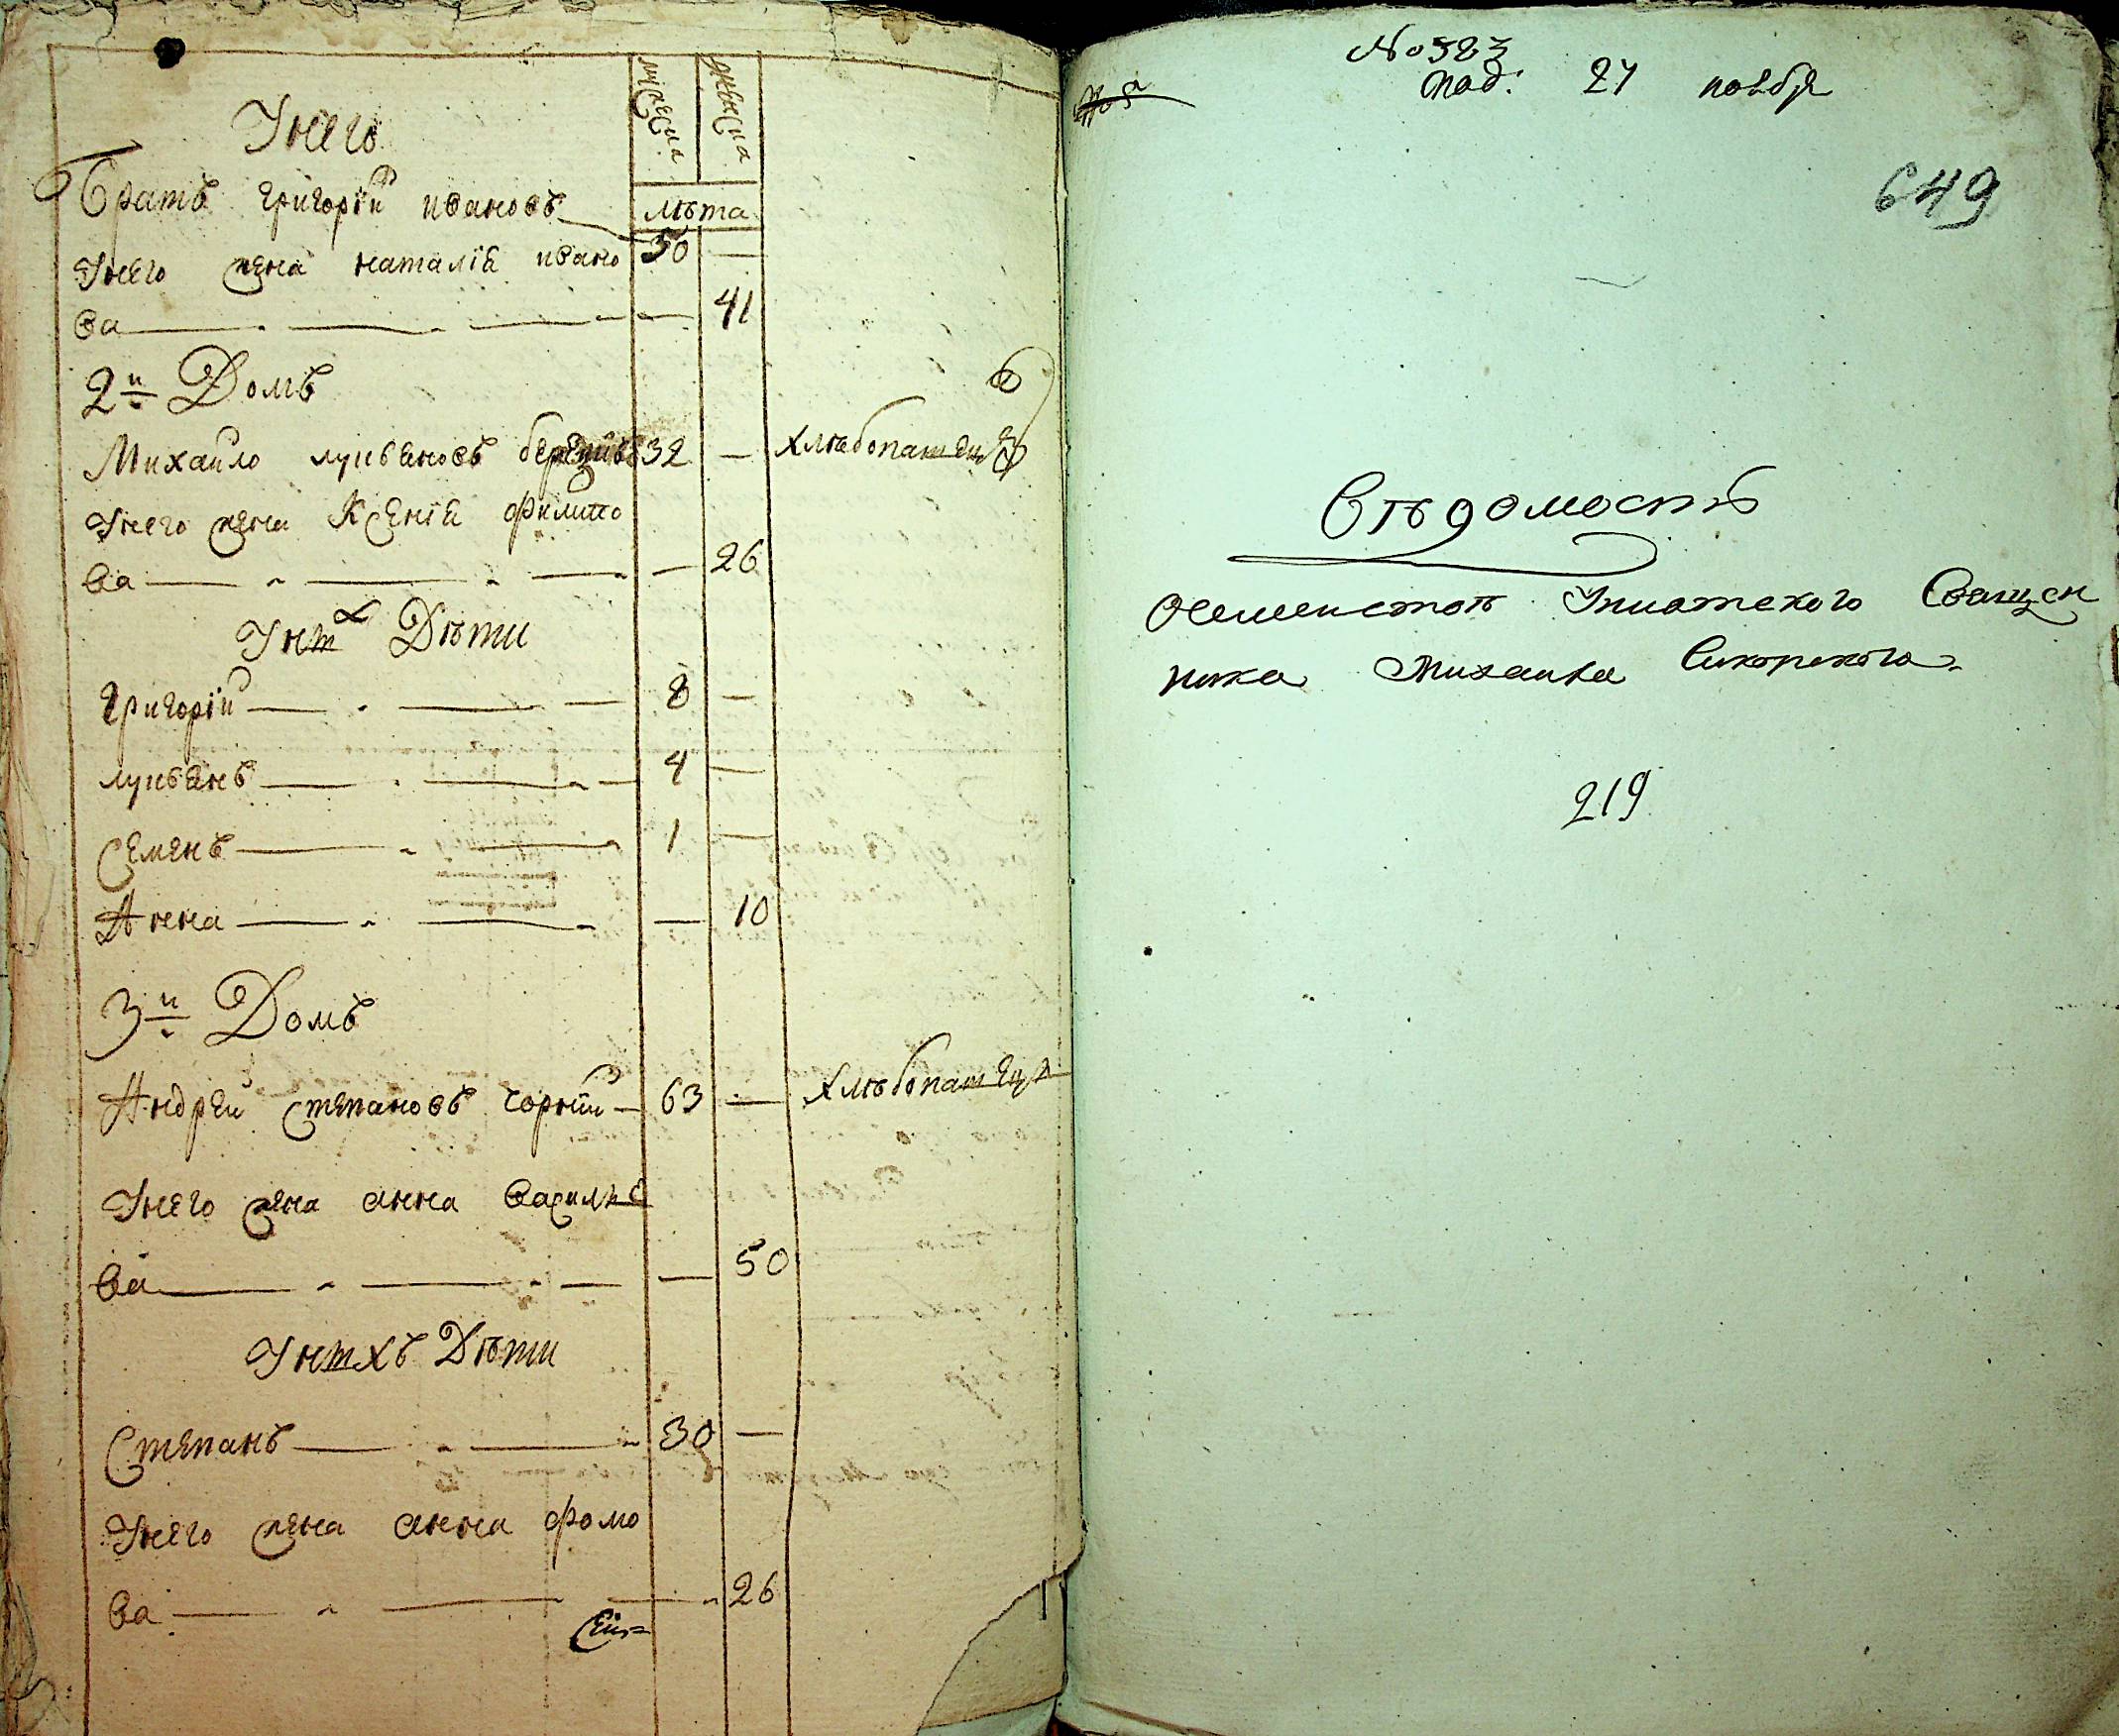 мужеска
женска
Унего
лѣта
Братъ григорій ивановъ 50 —
Унего жена наталіѣ ивано
ва — — 41
2й Домъ
Михайло лукьѣновъ 32 — хлѣбопашецъ
Унего жена Ксеніѣ филипо
ва — — 26
Унихъ Дѣти
григорій — 8 —
лукьѣнъ — 4 —
Семенъ — 1 —
Анна — — 10
3й Домъ
Андрей Степановъ чорній — 63 — хлѣбопашецъ
Унего жена анна Василіе
ва — — 50
Унихъ Дѣти
Степанъ — 30 —
Унего жена анна фомо
ва — — 26
No 523
под: 27 ноября
649
Вѣдомость
осемействѣ Униатского Священ
ника Михаила Сикорского
219